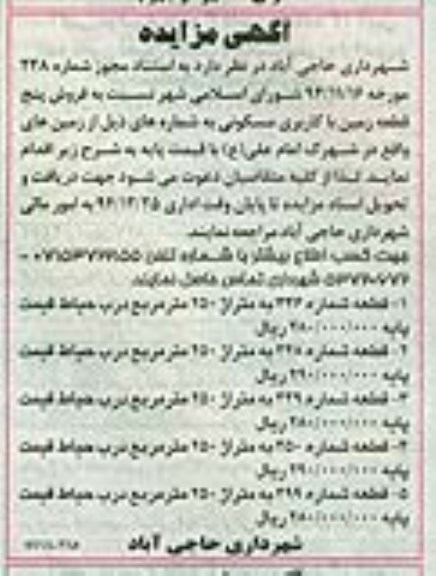 آگهی مزایده
شهرداری حاجی آباد در نظر دارد به استناد مجوز شماره ۲۳۸
مورخه ۹۶/۱۱/۱۶ شورای اسلامی شهر نسبت به فروش پنج
قطعه زمین با کاربری مسکونی به شماره های ذیل از زمین های
واقع در شهرک امام علی(ع) با قیمت پایه به شرح زیر اقدام
نماید لذا از کلیه متقاضیان دعوت می شود جهت دریافت و
تحویل اسناد مزایده تا پایان وقت اداری ۹۶/۱۲/۲۵ به امور مالی
شهرداری حاجی آباد مراجعه نمایند.
جهت کسب اطلاع بیشتر با شماره تلفن
شهرداری تماس حاصل نمایند.
۱- قطعه شماره ۳۲۶ به متراژ ۲۵۰ متر مربع درب حیاط قیمت
پایه ۲۸۰/۰۰۰/۰۰۰ ریال
۲- قطعه شماره ۳۲۸ به متراژ ۲۵۰ متر مربع درب حیاط قیمت
پایه ۲۹۰/۰۰۰/۰۰۰ ریال
۳- قطعه شماره ۳۲۹ به متراژ ۲۵۰ متر مربع درب حیاط قیمت
پایه ۲۸۰/۰۰۰/۰۰۰ ریال
۴- قطعه شماره ۳۵۰ به متراژ ۲۵۰ متر مربع درب حیاط قیمت
پایه ۲۹۰/۰۰۰/۰۰۰ ریال
۵- قطعه شماره ۳۹۹ به متراژ ۲۵۰ متر مربع درب حیاط قیمت
پایه ۲۸۰/۰۰۰/۰۰۰ ریال
شهرداری حاجی آباد